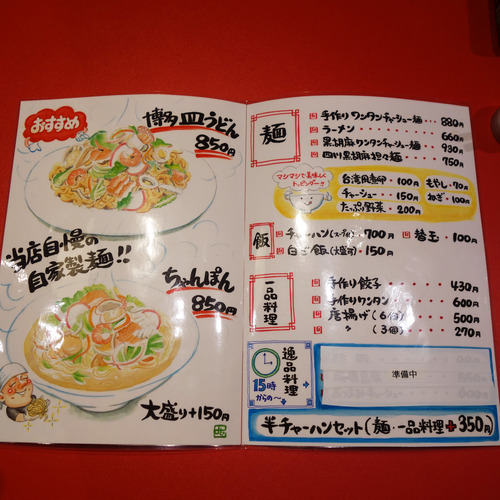 おすすめ
博多皿うどん
850円
当店自慢の
自家製麺!!
ちゃんぽん
850円
大盛り+150円
麺
回 手作りワンタンチャーシュー麺・・880円
回 ラーメン・・・・・660円
回 黒胡麻ワンタンチャーシュー麺・930円
回 四川黒胡麻担々麺・・・750円
マシマシで美味しく
トッピング!!
台湾風煮卵・100円
チャーシュー・150円
たっぷり野菜・200円
もやし・70円
ねぎ・100円
飯
回 チャーハン(スープ付)・700円
回 替玉・100円
回 白ご飯(大盛可)・150円
一品料理
回 手作り餃子・・・430円
回 手作りワンタン・・600円
回 唐揚げ(6個)・500円
〃 (3個)・270円
15時
からの〜
逸品料理
準備中
半チャーハンセット(麺・一品料理+350円)